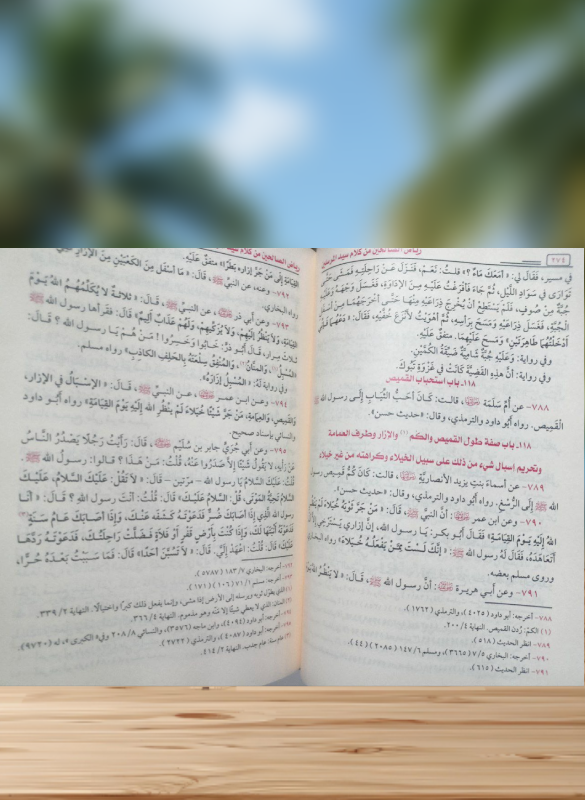 رياض الصالحين من كلام سيد المرسلين
٢٧٤
في مسير، فقال لي: «أَمَعَكَ مَاءٌ؟» قلتُ: نَعَمْ، فَنَزَلَ عَنْ رَاحِلَتِهِ فَمَشَى حَتَّى
تَوَارَى فِي سَوَادِ اللَّيْلِ، ثُمَّ جَاءَ فَأَفْرَغْتُ عَلَيْهِ مِنَ الإِدَاوَةِ، فَغَسَلَ وَجْهَهُ وَعَلَيْهِ
جُبَّةٌ مِنْ صُوفٍ، فَلَمْ يَسْتَطِعْ أَنْ يُخْرِجَ ذِرَاعَيْهِ مِنْهَا حَتَّى أَخْرَجَهُمَا مِنْ أَسْفَلِ
الْجُبَّةِ، فَغَسَلَ ذِرَاعَيْهِ وَمَسَحَ بِرَأْسِهِ، ثُمَّ أَهْوَيْتُ لأَنْزِعَ خُفَّيْهِ، فَقَالَ: «دَعْهُمَا فَإِنِّي
أَدْخَلْتُهُمَا طَاهِرَتَيْنِ» وَمَسَحَ عَلَيْهِمَا. متفقٌ عَلَيْهِ.
وفي رواية: وَعَلَيْهِ جُبَّةٌ شَامِيَّةٌ ضَيِّقَةُ الْكُمَّيْنِ.
وفي رواية: أَنَّ هذِهِ القَضِيَّةَ كَانَتْ فِي غَزْوَةِ تَبُوكَ.
١١٨ـ باب استحباب القميص
٧٨٨ـ عن أُمِّ سَلَمَةَ ﷺ، قالت: كَانَ أَحَبُّ الثِّيَابِ إِلَى رسولِ الله ﷺ
القَمِيص. رواه أبو داود والترمذي، وقال: «حديث حسن».
١١٨ـ باب صفة طول القميص والكم (١) والإزار وطرف العمامة
وتحريم إسبال شيء من ذلك على سبيل الخيلاء وكراهته من غير خيلاء
٧٨٩ـ عن أسماءَ بنتِ يزيدَ الأنصاريَّةِ، قالت: كَانَ كُمُّ قَمِيصِ رسولِ
الله ﷺ إِلَى الرُّسْغِ. رواه أبو داود والترمذي، وقال: «حديث حسن».
٧٩٠ـ وعن ابن عمر: أَنَّ النبيَّ ﷺ، قَالَ: «مَنْ جَرَّ ثَوْبَهُ خُيَلاءَ لَمْ يَنْظُرِ
اللهُ إِلَيْهِ يَوْمَ القِيَامَةِ» فَقَالَ أَبُو بَكْرٍ: يَا رسول الله، إِنَّ إزاري يَسْتَرْخِي إلا أَنْ
أَتَعَاهَدَهُ، فَقَالَ لَهُ رسول الله ﷺ: «إِنَّكَ لَسْتَ مِمَّنْ يَفْعَلُهُ خُيَلاءَ» رواه البخاري
وروى مسلم بعضه.
٧٩١ـ وعن أَبي هريرة: أَنَّ رسول الله ﷺ، قَالَ: «لا يَنْظُرُ اللهُ
٧٨٨ـ أخرجه: أبو داود (٤٠٢٥)، والترمذي (١٧٦٢).
(١) الكم: رُدن القميص. النهاية ٤/٢٠٠.
٧٨٩ـ انظر الحديث (٥١٨).
٧٩٠ـ أخرجه: البخاري ٥/٧ (٣٦٦٥)، ومسلم ٦/١٤٧ (٢٠٨٥) (٤٤).
٧٩١ـ انظر الحديث (٦١٥).
رياض الصالحين من كلام سيد
القِيَامَةِ إِلَى مَنْ جَرَّ إِزَارَهُ بَطَرًا» متفقٌ عَلَيْهِ.
٧٩٢ـ وعنه، عن النبيِّ ﷺ، قَالَ: «مَا أَسْفَلَ مِنَ الكَعْبَيْنِ مِنَ الإزار
رواه البخاري.
٧٩٣ـ وعن أبي ذر، عن النبيِّ ﷺ، قَالَ: «ثَلاثَةٌ لا يُكَلِّمُهُمُ اللهُ يَوْمَ
القِيَامَةِ، وَلا يَنْظُرُ إِلَيْهِمْ، وَلا يُزَكِّيهِمْ، وَلَهُمْ عَذَابٌ أَلِيمٌ» قَالَ: فقَرأَها رسولُ الله ﷺ
ثلاثَ مِرار، قَالَ أَبُو ذرٍّ: خَابُوا وَخَسِرُوا! مَنْ هُمْ يَا رسول الله؟ قَالَ:
«المُسْبِلُ، وَالمَنَّانُ، وَالمُنْفِقُ سِلْعَتَهُ بِالحَلِفِ الكَاذِبِ» رواه مسلم.
وفي رواية لَهُ: «المُسْبِلُ إِزَارَهُ».
٧٩٤ـ وعن ابن عمر، عن النبيِّ ﷺ، قَالَ: «الإِسْبَالُ فِي الإزَارِ،
وَالقَمِيصِ، وَالعِمَامَةِ، مَنْ جَرَّ شَيْئًا خُيَلاءَ لَمْ يَنْظُرِ الله إِلَيْهِ يَوْمَ القِيَامَةِ» رواه أبو داود
والنسائي بإسناد صحيح.
٧٩٥ـ وعن أبي جُرَيٍّ جابر بن سُلَيْم، قَالَ: رَأَيْتُ رَجُلًا يَصْدُرُ النَّاسُ
عَنْ رَأْيِهِ، لا يَقُولُ شَيْئًا إِلاَّ صَدَرُوا عَنْهُ، قُلْتُ: مَنْ هَذَا؟ قَالُوا: رسولُ الله ﷺ.
قُلْتُ: عَلَيْكَ السَّلامُ يَا رسول الله - مرّتين - قَالَ: «لا تَقُلْ: عَلَيْكَ السَّلامُ، عَلَيْكَ
السَّلامُ تَحِيَّةُ المَوْتَى، قُلْ: السَّلامُ عَلَيْكَ» قَالَ: قُلْتُ: أَنْتَ رسول اللهِ؟ قَالَ: «أَنَا
رسول الله الَّذِي إِذَا أَصَابَكَ ضُرٌّ فَدَعَوْتَهُ كَشَفَهُ عَنْكَ، وَإِذَا أَصَابَكَ عَامُ سَنَةٍ
فَدَعَوْتَهُ أَنْبَتَهَا لَكَ، وَإِذَا كُنْتَ بِأَرْضٍ قَفْرٍ أَوْ فَلاةٍ فَضَلَّتْ رَاحِلَتُكَ، فَدَعَوْتَهُ رَدَّهَا
عَلَيْكَ» قَالَ: قُلْتُ: اعْهَدْ إِلَيَّ. قَالَ: «لا تَسُبَّنَّ أحَدًا» قَالَ: فَمَا سَبَبْتُ بَعْدَهُ حُرًّا،
أخرجه: البخاري ٧/١٨٣ (٥٧٨٧).
أخرجه: مسلم ١/٧١ (١٠٦) (١٧١).
النهاية ٢/٣٣٩.
النهاية ٤/٣٦٦.
أخرجه: أبو داود (٤٠٩٤)، وابن ماجه (٣٥٧٦)، والنسائي ٨/٢٠٨ وفي «الكبرى» له (٩٧٢٠).
أخرجه: أبو داود (٤٠٨٤)، والترمذي (٢٧٢٢).
النهاية ٢/٤١٤.